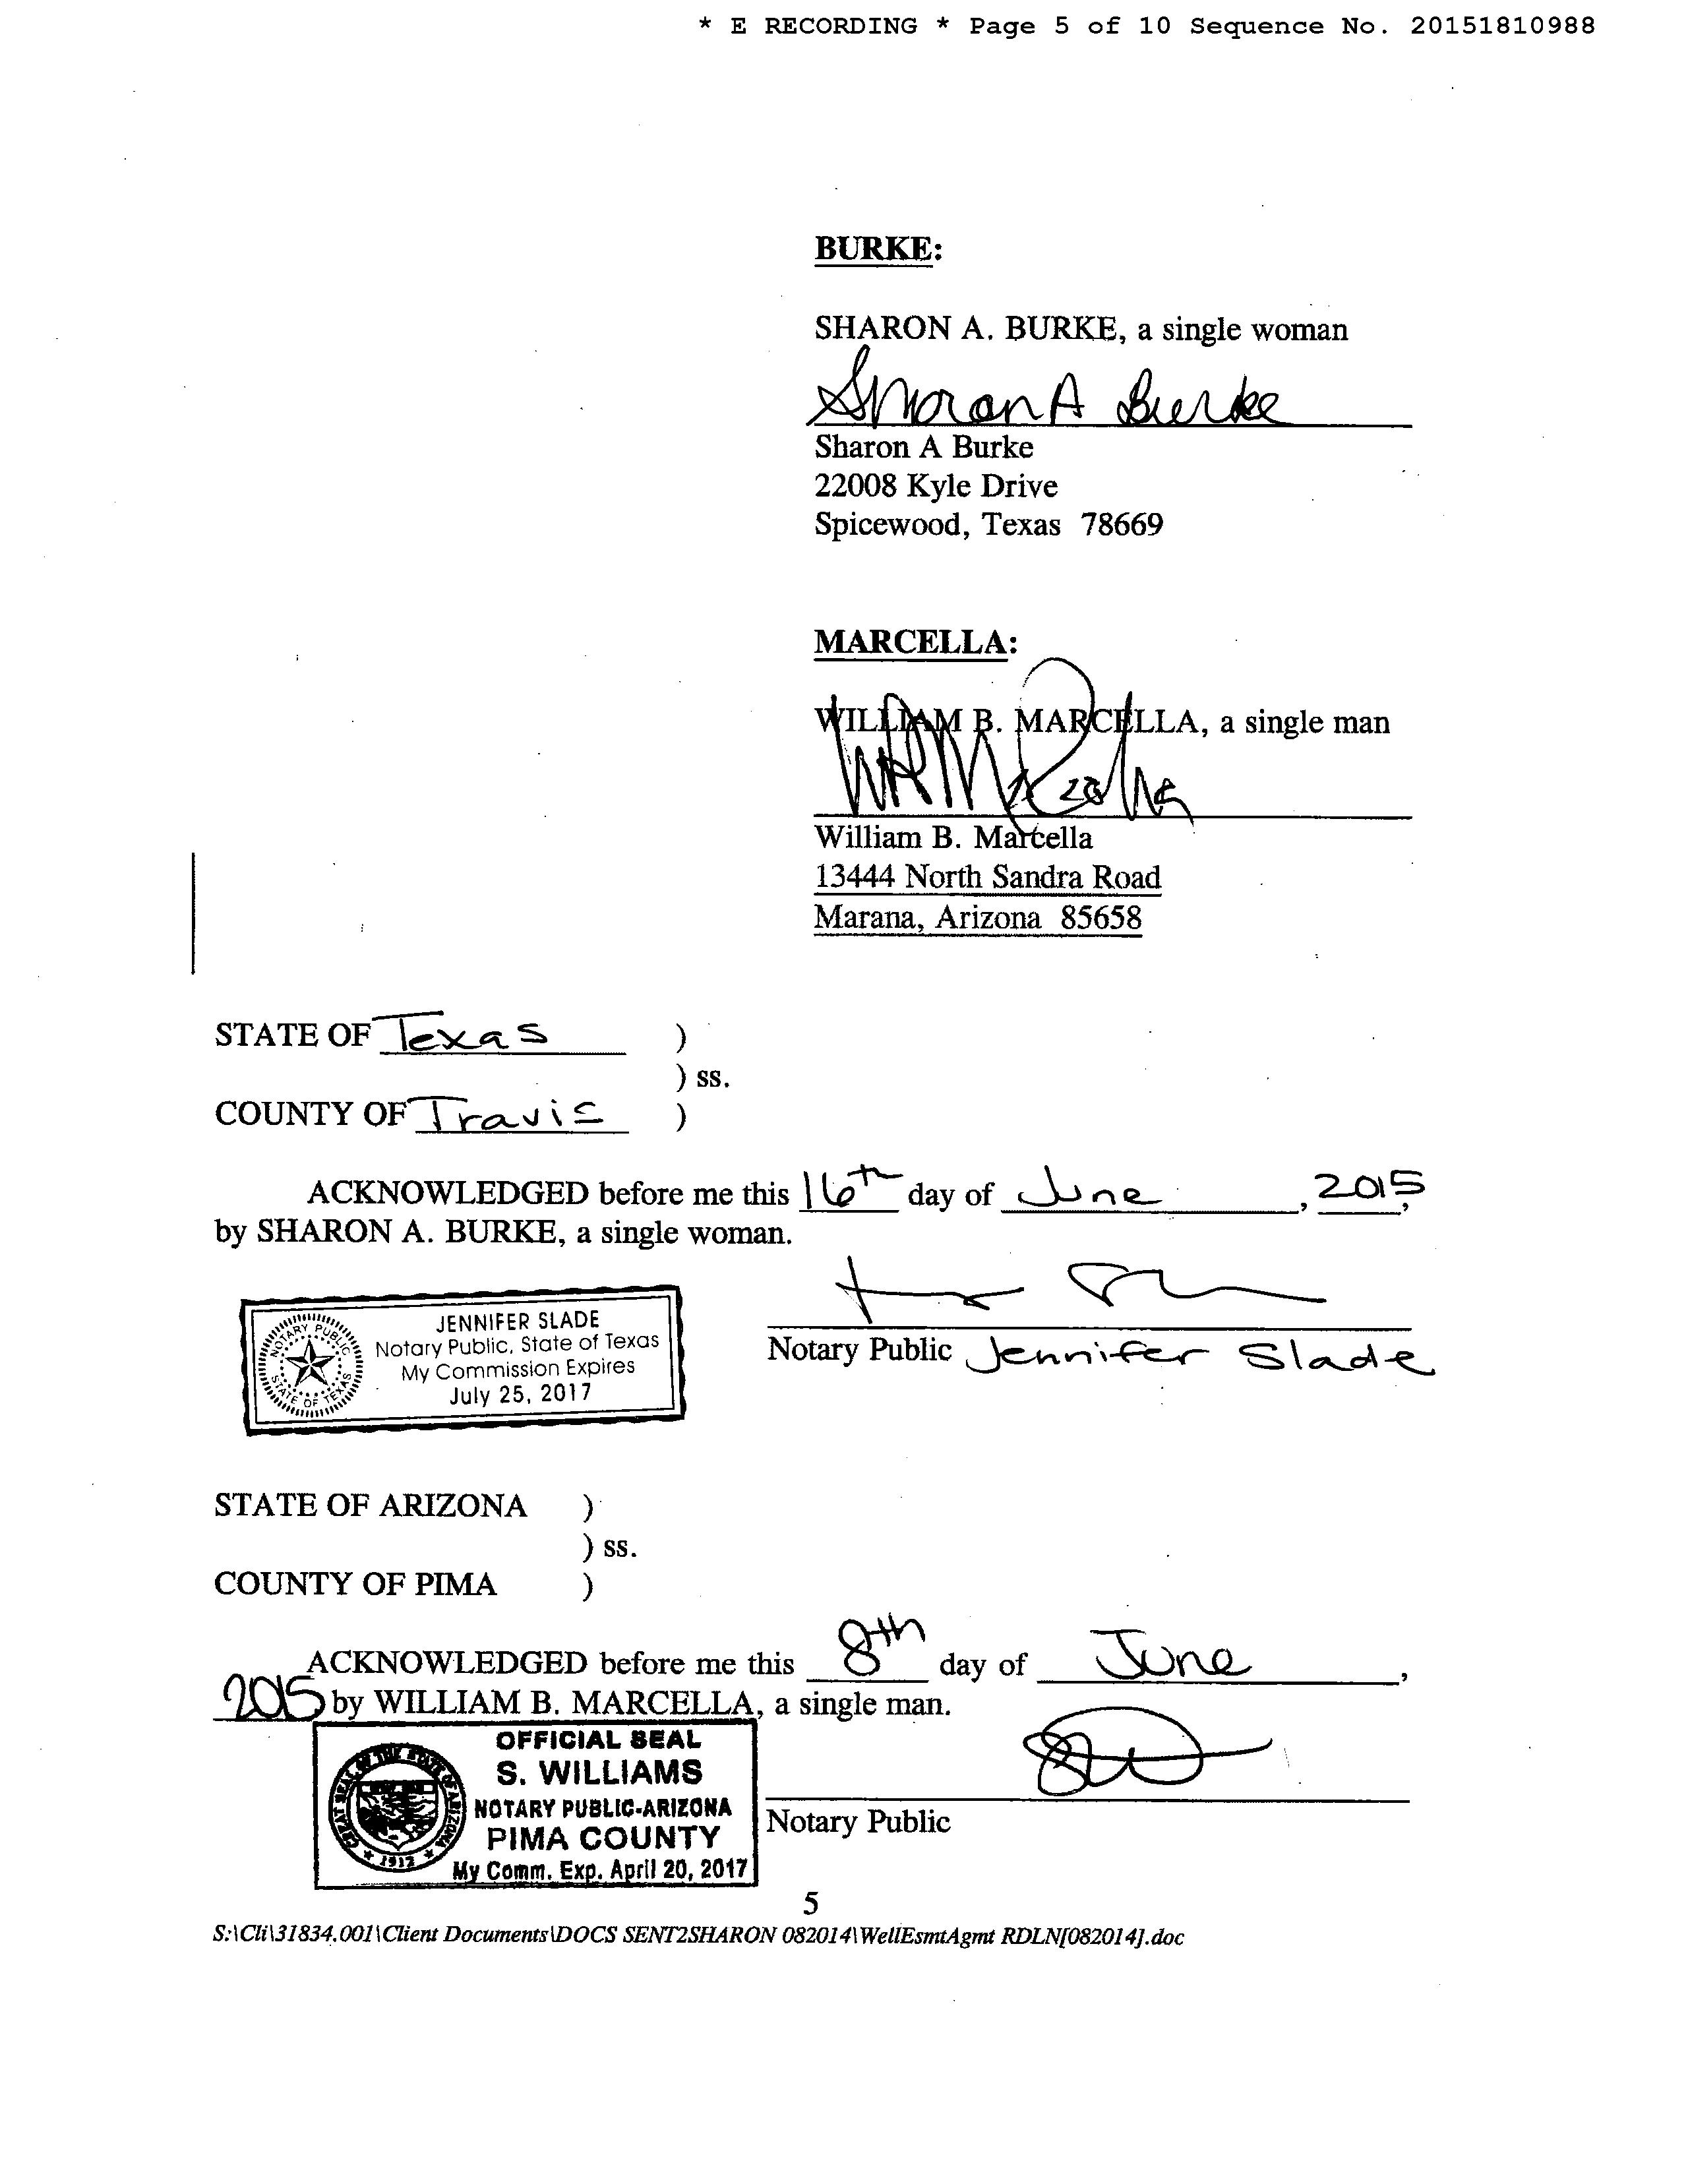 * E RECORDING * Page 5 of 10 Sequence No. 20151810988
BURKE:
SHARON A. BURKE, a single woman
Sharon A Burke
Sharon A Burke
22008 Kyle Drive
Spicewood, Texas 78669
MARCELLA:
WILLIAM B. MARCELLA, a single man
William B. Marcella
13444 North Sandra Road
Marana, Arizona 85658
STATE OF Texas )
) ss.
COUNTY OF Travis )
ACKNOWLEDGED before me this 16th day of June, 2015,
by SHARON A. BURKE, a single woman.
JENNIFER SLADE
Notary Public, State of Texas
My Commission Expires
July 25, 2017
NOTARY PUBLIC
STATE OF TEXAS
Notary Public Jennifer Slade
STATE OF ARIZONA )
) ss.
COUNTY OF PIMA )
ACKNOWLEDGED before me this 8th day of June,
2015 by WILLIAM B. MARCELLA, a single man.
OFFICIAL SEAL
S. WILLIAMS
NOTARY PUBLIC-ARIZONA
PIMA COUNTY
My Comm. Exp. April 20, 2017
GREAT SEAL OF THE STATE OF ARIZONA
1912
Notary Public
5
S:\Cli\31834.001\Client Documents\DOCS SENT2SHARON 082014\WellEsmtAgmt RDLN[082014].doc